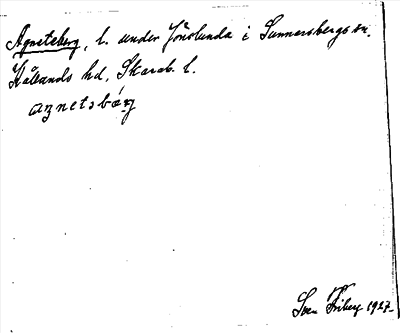 Agneteberg, l. under Jönslunda i Sunnersbergs sn.
Kållands hd, Skarab. l.
agnetsbárg
Sven Friberg 1927